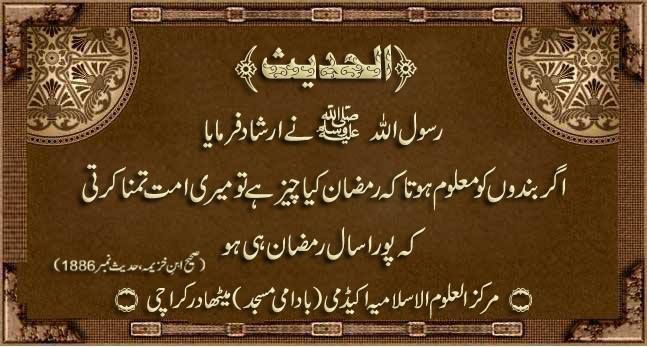 ﴿الحدیث﴾
رسول اللہ ﷺ نے ارشاد فرمایا
اگر بندوں کو معلوم ہوتا کہ رمضان کیا چیز ہے تو میری امت تمنا کرتی
کہ پورا سال رمضان ہی ہو
(صحیح ابن خزیمہ، حدیث نمبر 1886)
مرکز العلوم الاسلامیہ اکیڈمی (بادامی مسجد) میٹھادر کراچی